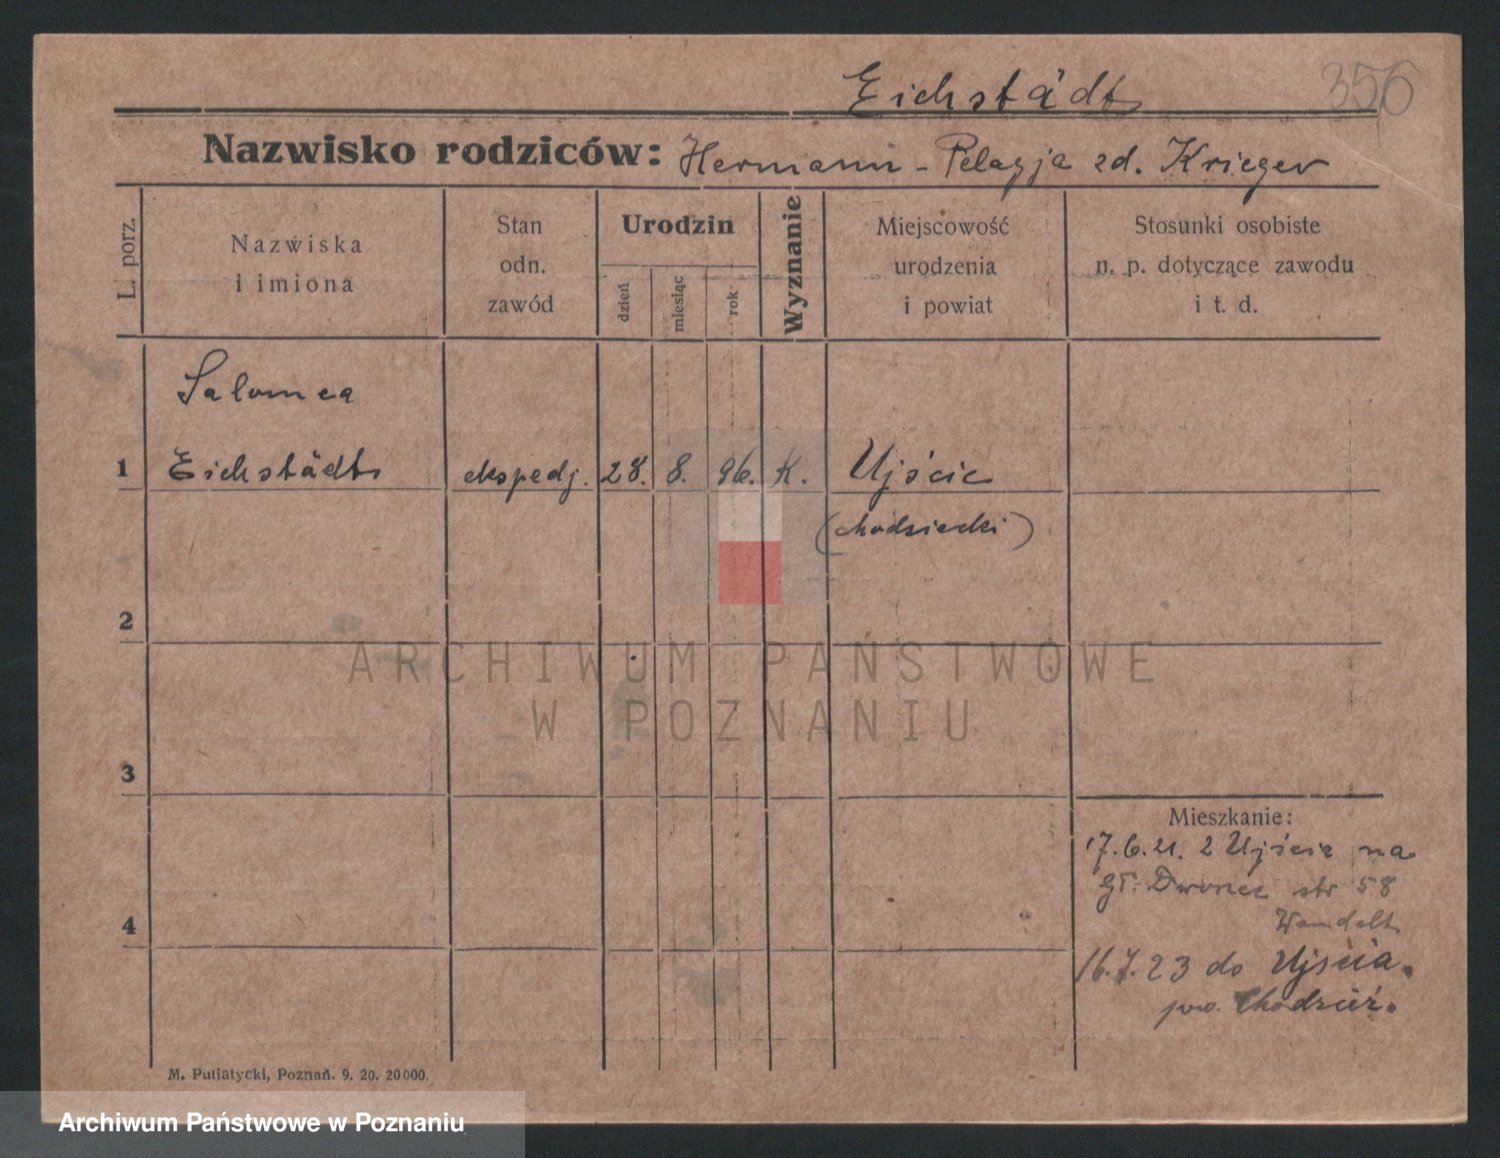 Eichstädt 356
Nazwisko rodziców: Hermann - Pelagja zd. Krieger
L. porz.
Nazwiska
i imiona
Stan
odn.
zawód
Urodzin
dzień
miesiąc
rok
Wyznanie
Miejscowość
urodzenia
i powiat
Stosunki osobiste
n. p. dotyczące zawodu
i t. d.
Salomea
1 Eichstädt ekspedj. 28. 8. 96. K. Ujście
(chodziecki)
2
ARCHIWUM PAŃSTWOWE
W POZNANIU
3
Mieszkanie:
17.6.21. z Ujście na
Gr. Dworzec str 58
Wandelt
4
16.7.23 do Ujścia.
pow. Chodzież.
M. Putiatycki, Poznań. 9. 20. 20000.
Archiwum Państwowe w Poznaniu